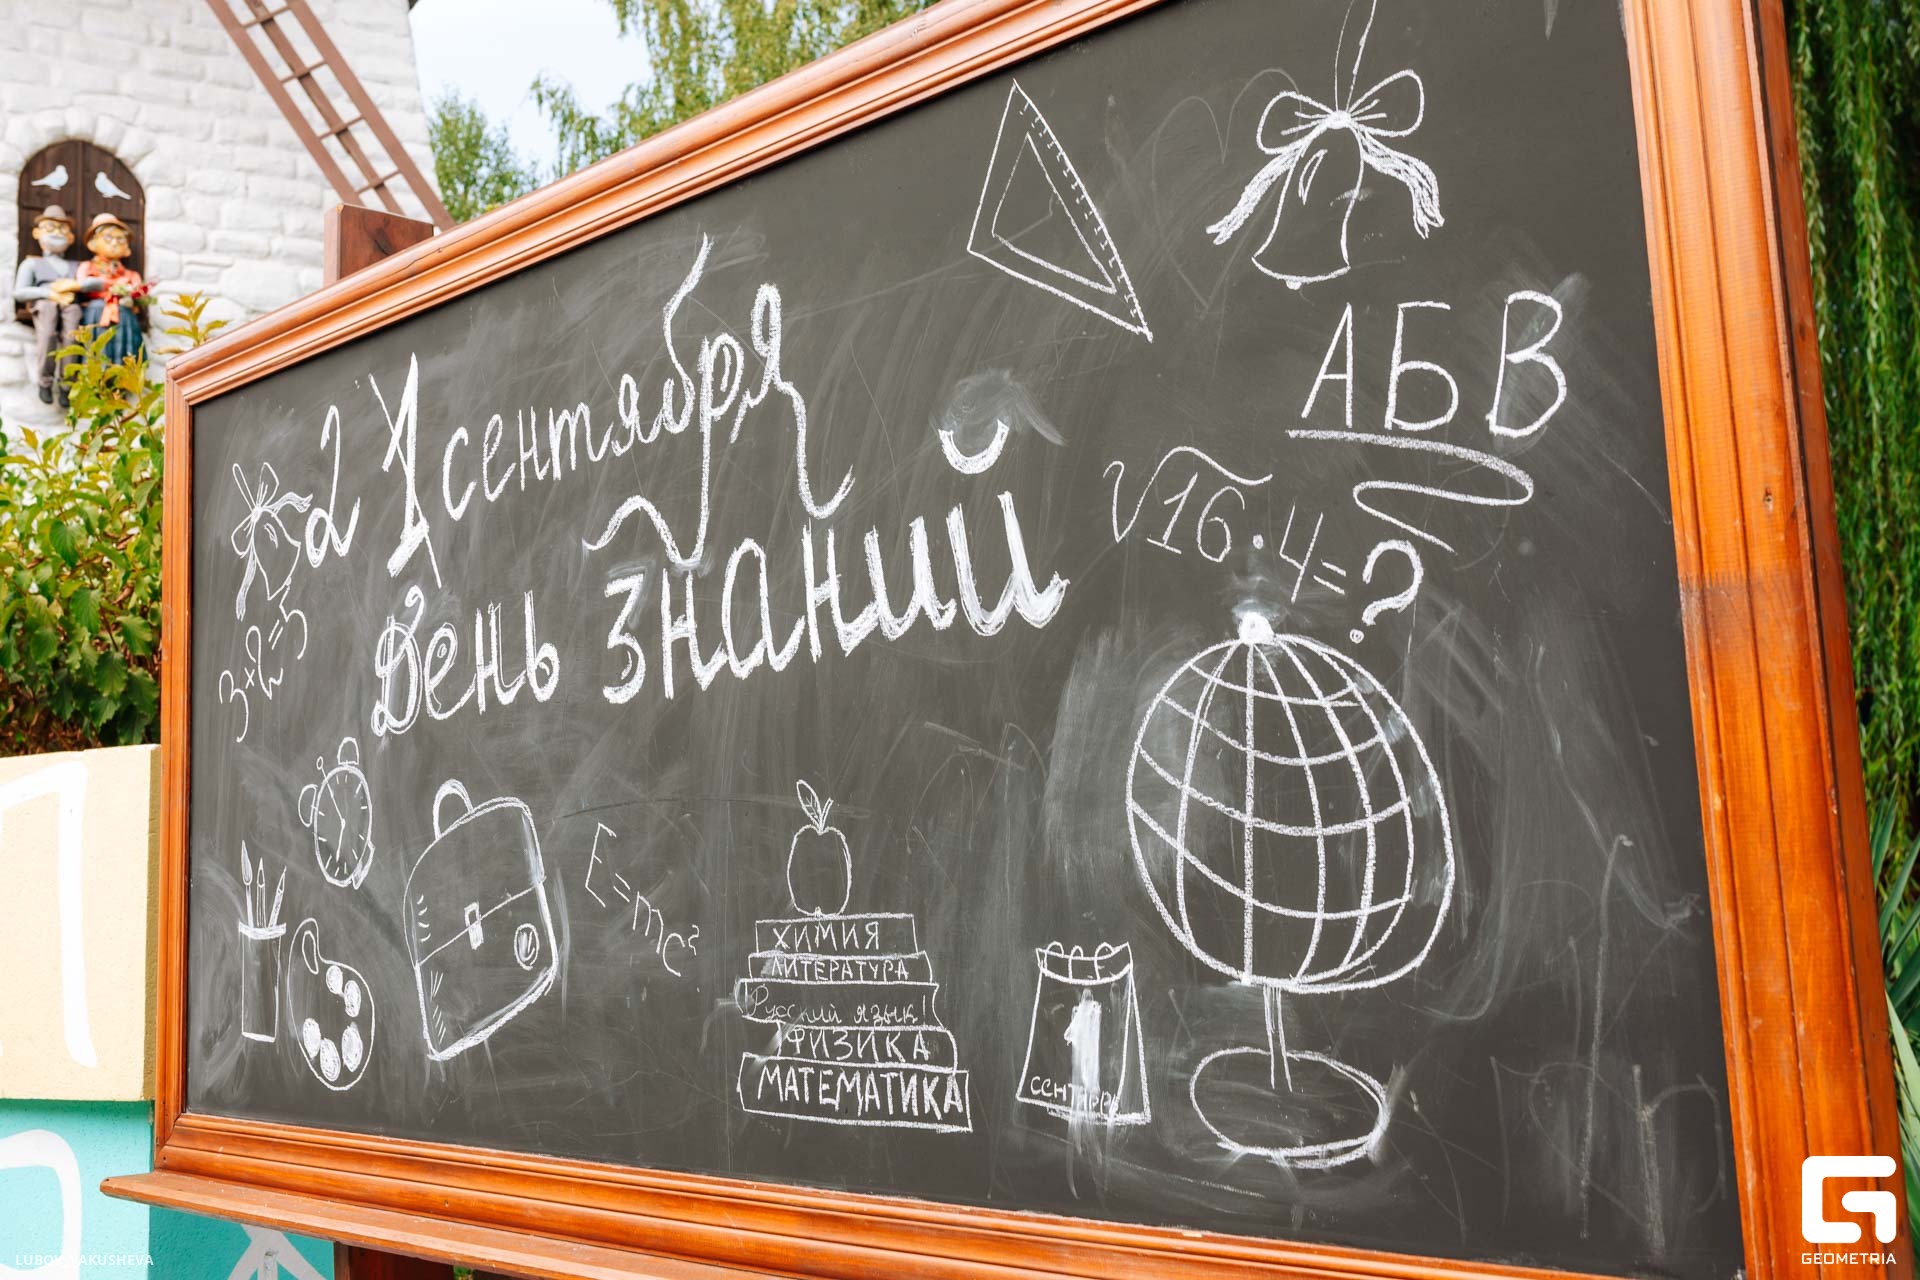 2 1 сентября
День знаний
3+2=5
АБВ
√16·4=?
E=mc²
ХИМИЯ
ЛИТЕРАТУРА
Русский язык!
ФИЗИКА
МАТЕМАТИКА
1
СЕНТЯБРЬ
LUBOV YAKUSHEVA
GEOMETRIA